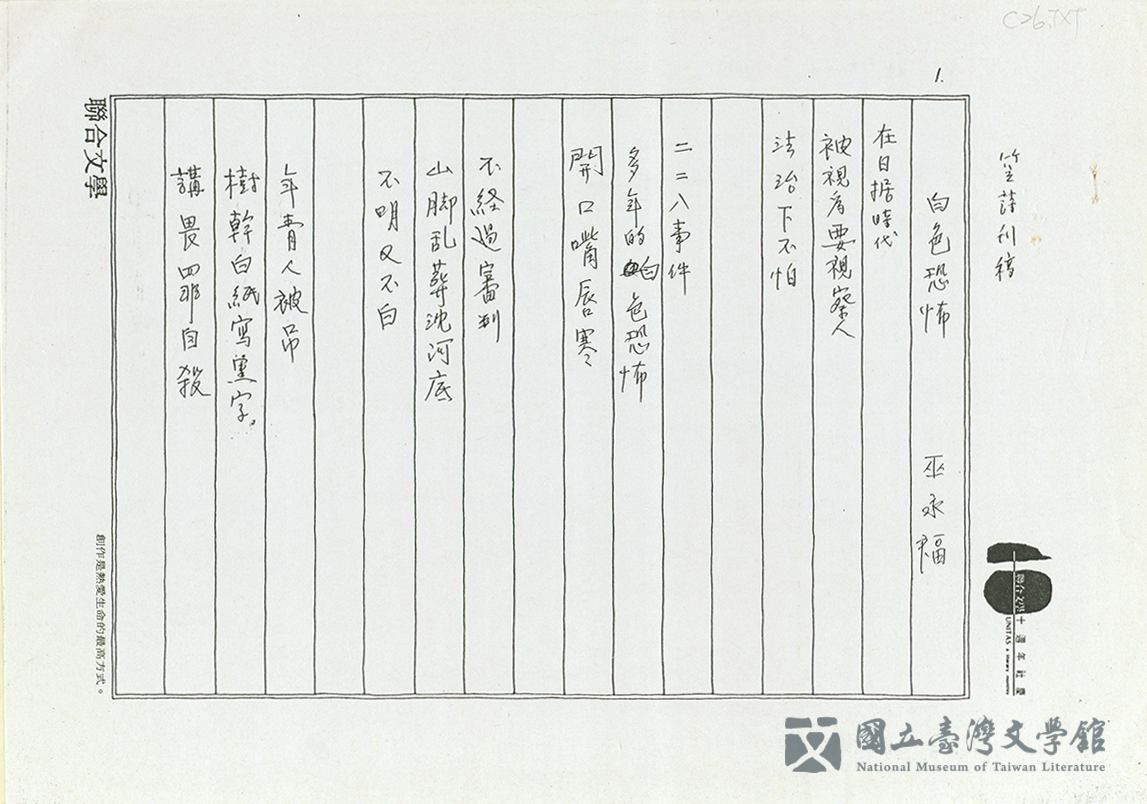 C26.TXT
笠詩刊稿
1.
白色恐怖 巫永福
在日据時代
被視為要視察人
法治下不怕
二二八事件
多年的白色恐怖
開口嘴唇寒
不経過審判
山脚乱葬沈河底
不明又不白
年青人被吊
樹幹白紙寫黑字。
講畏罪自殺
聯合文學
創作是熱愛生命的最高方式。
聯合文學十週年社慶
UNITAS
國立臺灣文學館
National Museum of Taiwan Literature